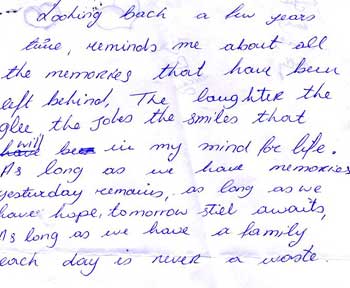 Looking back a few years
time, reminds me about all
the memories that have been
left behind, The laughter the
glee, the jokes the smiles that
will be in my mind for life.
As long as we have memories
yesturday remains, as long as we
have hope, tomorrow still awaits,
As long as we have a family
each day is never a waste.